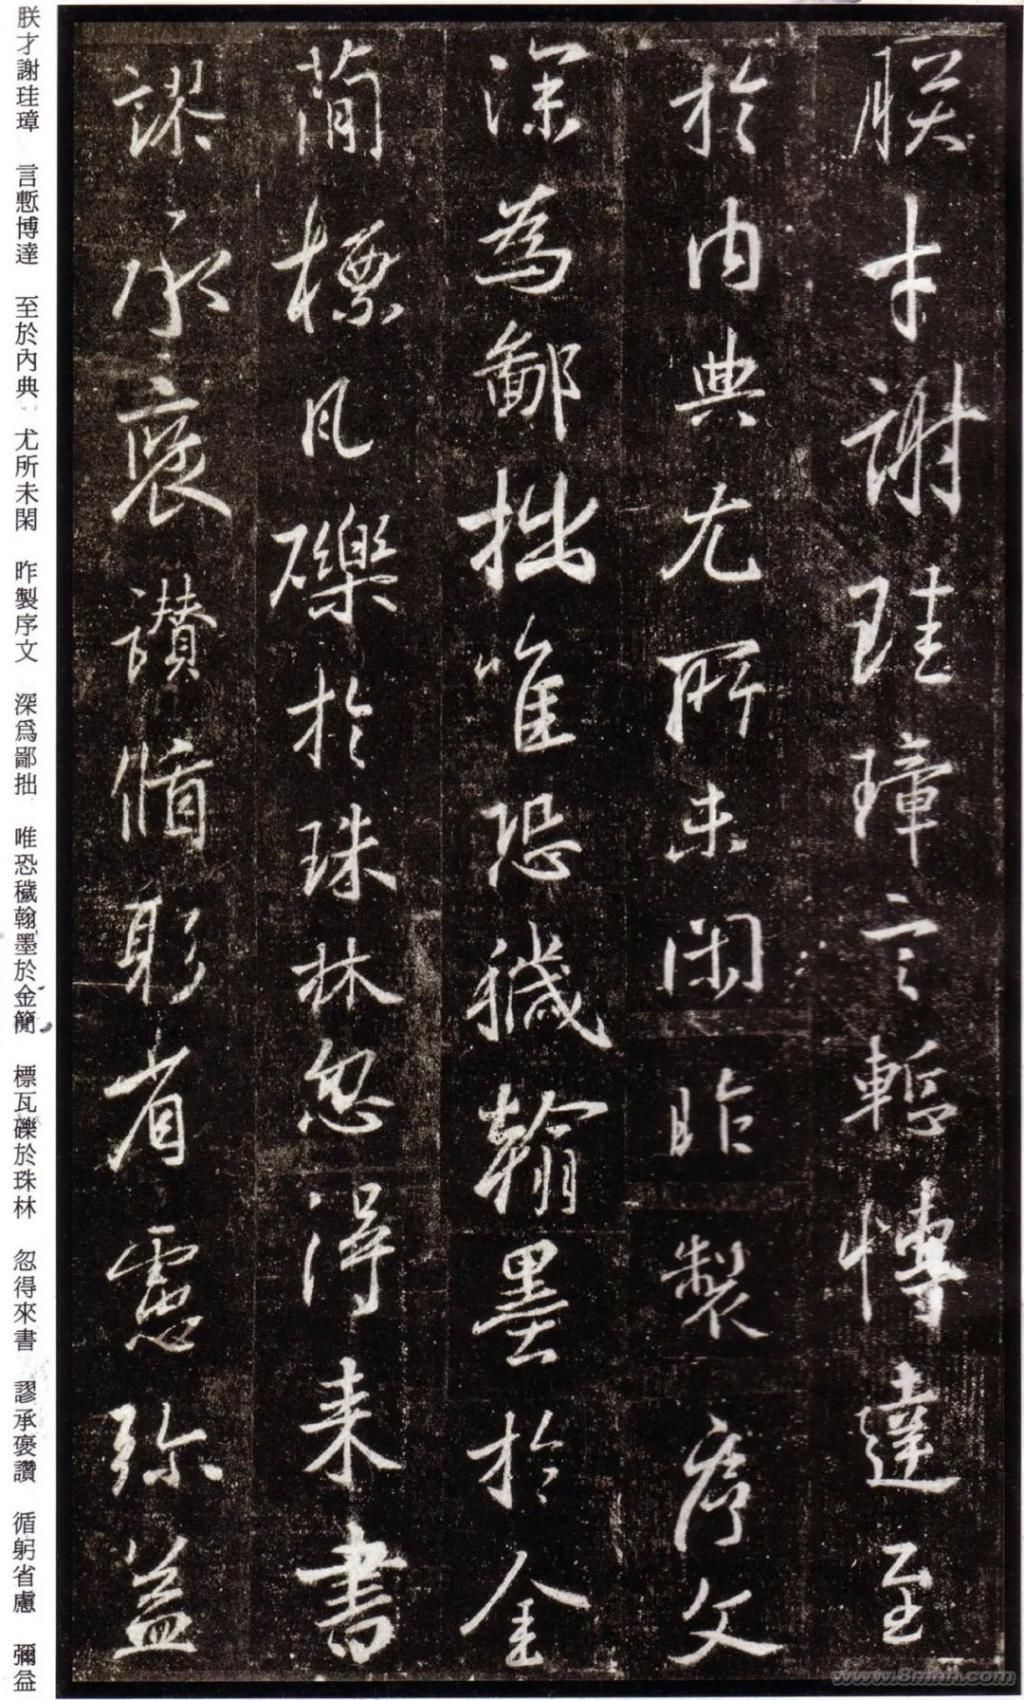 朕才謝珪璋言慙博達至
於内典尤所未閑昨製序文
深為鄙拙唯恐穢翰墨於金
簡標瓦礫於珠林忽得来書
謬承褒讚循躬省慮弥益
朕才謝珪璋 言慙博達 至於內典 尤所未閑 昨製序文 深爲鄙拙 唯恐穢翰墨於金簡 標瓦礫於珠林 忽得來書 謬承褒讚 循躬省慮 彌益